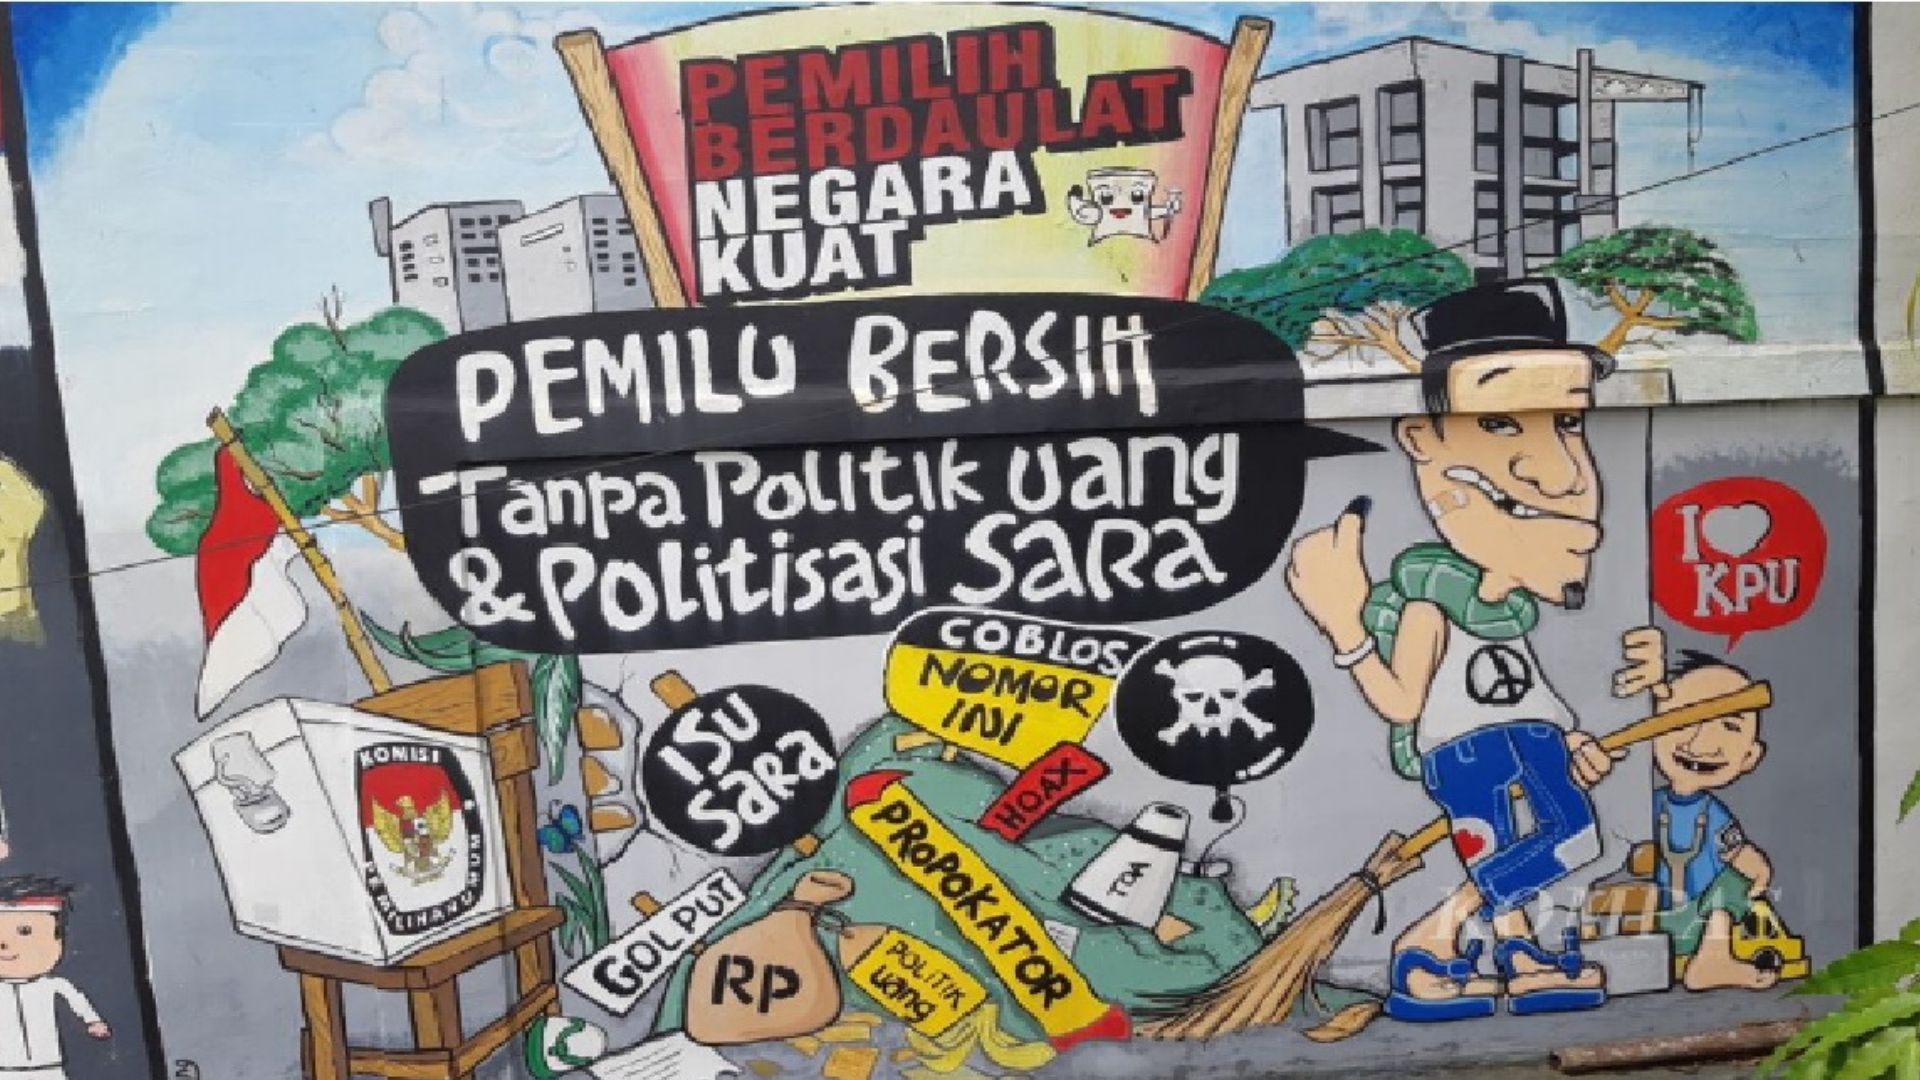 PEMILIH
BERDAULAT
NEGARA
KUAT
PEMILU BERSIH
Tanpa Politik Uang
& Politisasi SARA
I
KPU
COBLOS
NOMOR
INI
ISU
SARA
HOAX
PROPOKATOR
TOA
GOLPUT
RP
POLITIK
Uang
KOMISI
PEMILIHAN UMUM
KOMPAS